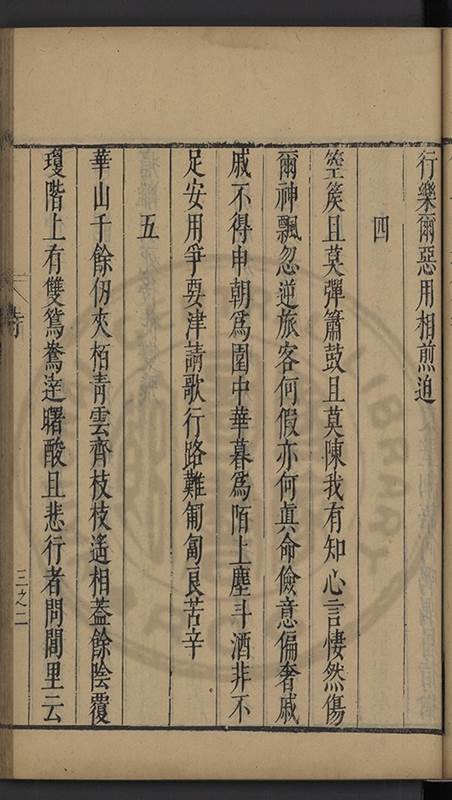 行樂爾惡用相煎迫
四
箜篌且莫彈簫鼓且莫陳我有知心言悽然傷
爾神飄忽逆旅客何假亦何眞命儉意偏奢戚
戚不得申朝爲園中華暮爲陌上塵斗酒非不
足安用爭要津請歌行路難匍匐良苦辛
五
華山千餘仞夾栢靑雲齊枝枝遙相蓋餘陰覆
瓊階上有雙鴛鴦達曙酸且悲行者問閭里云
詩
三之二